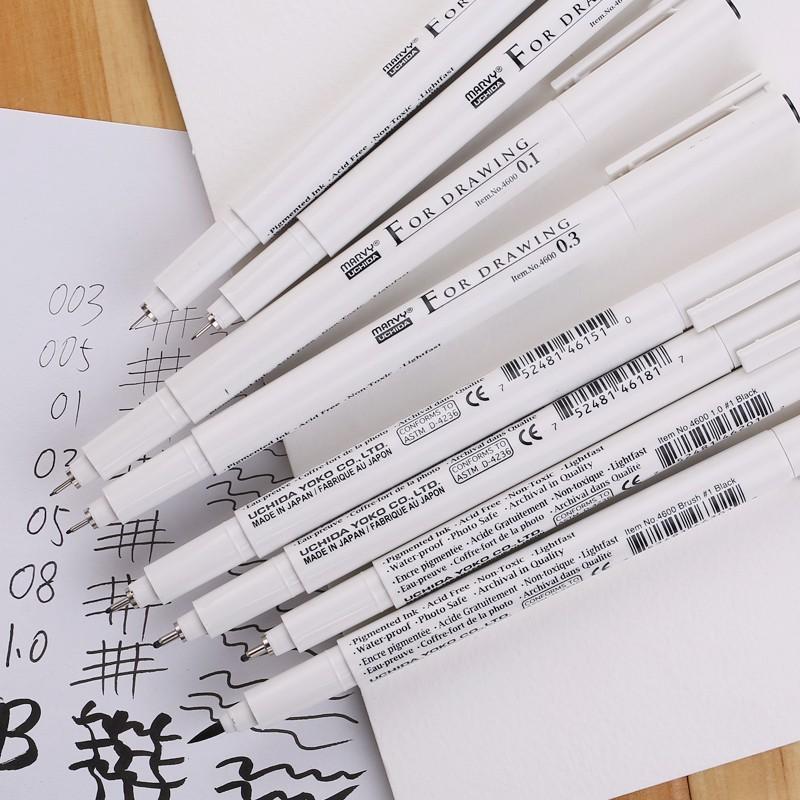 MARVY®
UCHIDA
FOR DRA
·Pigmented Ink ·Acid Free ·Non-Toxic ·Lightfast
MARVY®
UCHIDA
FOR DRA
Item.No.46
MARVY®
UCHIDA
FOR DRAWING
Item.No.4600 0.1
MARVY®
UCHIDA
FOR DRAWING
Item.No.4600 0.3
Pigmented Ink ·Acid Free ·Non-Toxic ·Lightfast
·Eau-preuve ·Coffre-fort de la photo ·Archival dans Qualité
UCHIDA YOKO CO., LTD.
MADE IN JAPAN / FABRIQUE AU JAPON
CONFORMS TO
ASTM D-4236
CE
7 52481 46151 0
·Eau-preuve ·Coffre-fort de la photo ·Archival dans Qualité
UCHIDA YOKO CO., LTD.
MADE IN JAPAN / FABRIQUE AU JAPON
CONFORMS TO
ASTM D-4236
CE
7 52481 46181 7
·Pigmented Ink ·Acid Free ·Non Toxic ·Lightfast
·Water-proof ·Photo Safe ·Archival in Quality
·Encre pigmentée ·Acide Gratuitement ·Non-toxique ·Lightfast
·Eau-preuve ·Coffre-fort de la photo ·Archival dans Qualité
UCHIDA YOKO CO., LTD.
CONFORMS TO
Item No.4600 1.0 #1 Black
·Pigmented Ink ·Acid Free ·Non Toxic ·Lightfast
·Water-proof ·Photo Safe ·Archival in Quality
·Encre pigmentée ·Acide Gratuitement ·Non-toxique ·Lightfast
·Eau-preuve ·Coffre-fort de la photo ·Archival dans Qualité
UCHIDA YOKO CO., LTD.
CONFORMS TO
Item No.4600 Brush #1 Black
003
005
01
05
08
1.0
B